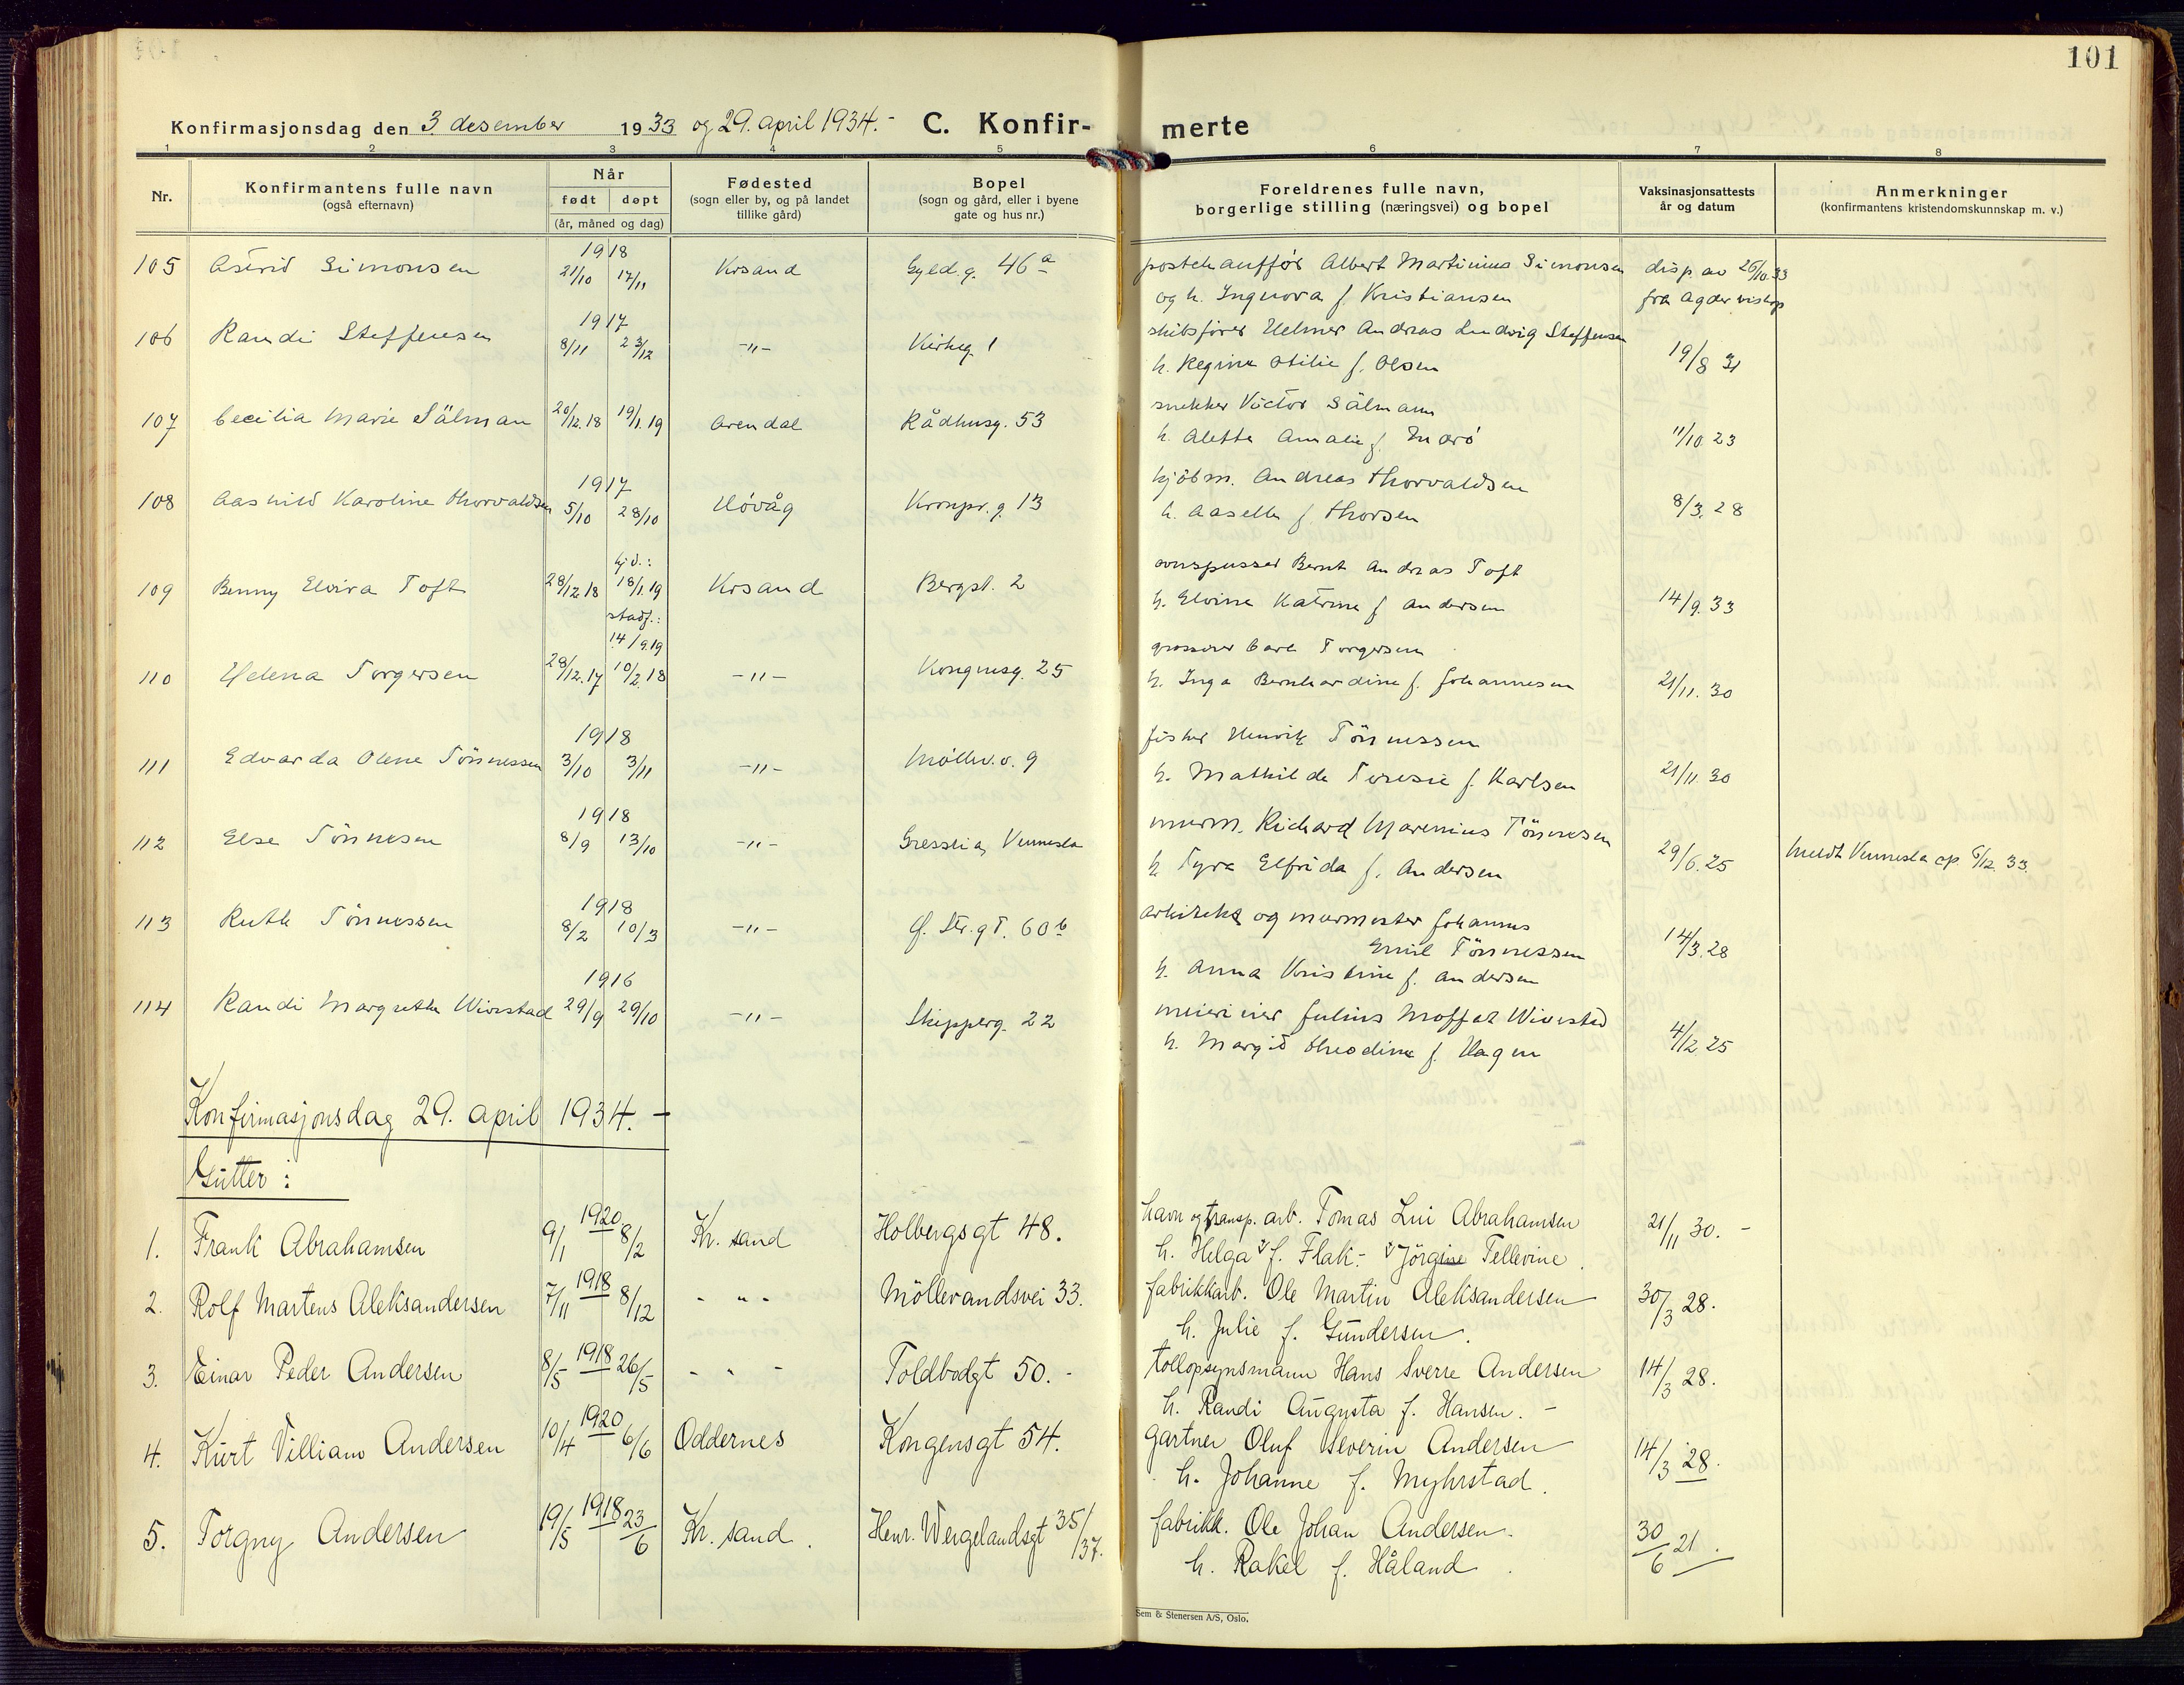 101
Konfirmasjonsdag den 3 desember 1933 og 29. april 1934.- C. Konfir- merte
1 2 3 4 5 6 7 8
Nr.
Konfirmantens fulle navn
(også efternavn)
Når
født døpt
(år, måned og dag)
Fødested
(sogn eller by, og på landet
tillike gård)
Bopel
(sogn og gård, eller i byene
gate og hus nr.)
Foreldrenes fulle navn,
borgerlige stilling (næringsvei) og bopel
Vaksinasjonsattests
år og datum
Anmerkninger
(konfirmantens kristendomskunnskap m. v.)
1918
105 Astrid Simonsen 21/10 17/11 Krsand Gyld.g. 46a postchauffør Albert Martinius Simonsen disp. av 26/10.33
og h. Ingnora f. Kristiansen fra Agder biskop
1917
106 Randi Steffensen 8/11 23/12 -"- Kirkeg. 1 skibsfører Helmer Andreas Ludvig Steffensen 19/8 31
h. Regine Otilie f. Olsen
107 Cecilia Marie Sälman 20/12.18 19/1.19 Arendal Rådhusg. 53 snekker Victor Sälmann 11/10.23
h. Alette Amalie f. Marö
1917
108 Aashild Karoline Thorvaldsen 5/10 28/10 Høvåg Kronpr.g. 13 kjöbm. Andreas Thorvaldsen 8/3.28
h. Aaselle f. Thorsen
hj.d.:
109 Benny Elvira Toft 28/12 18 18/1.19 Krsand Bergst. 2 vognpusser Bernt Andreas Toft 14/9.33
stadf.:
14/9.19
h. Elvine Katrine f. Andersen
110 Helena Torgersen 28/12.17 10/2.18 -"- Kongensg. 25 grosserer Carl Torgersen 21/11.30
h. Inga Bernhardine f. Johannesen
1918
111 Edvarda Olene Tönnessen 3/10 3/11 -"- Möllev.v. 9 fisker Henrik Tönnessen 21/11.30
h. Mathilde Teresie f. Karlsen
1918
112 Else Tönnesen 8/9 13/10 -"- Gresslia, Vennesla murm. Richard Marenius Tönnesen 29/6.25 Meldt Vennesla sp. 6/12.33.
h. Tyra Elfrida f. Andersen
1918
113 Ruth Tönnessen 8/2 10/3 -"- Ø. Str.gt. 60b arkitekt og murmester Johannes 14/3.28
Emil Tönnessen
h. Anna Kristine f. Andersen
1916
114 Randi Margrethe Wivestad 29/9 29/10 -"- Skipperg. 22 meierieier Julius Moffat Wivestad 4/2.25
h. Margit Theodine f. Hagen
Konfirmasjonsdag 29. april 1934. -
Gutter:
1. Frank Abrahamsen 9/1 1920 8/2 Kr. sand Holbergsgt 48. havn og transp. arb. Tomas Lui Abrahamsen 21/11 30. -
h. Helga f. Flak.- Jörgine Tellevine.
2. Rolf Martens Aleksandersen 7/11 1918 8/12 - " - Möllevandsvei 33. fabrikkarb. Ole Martin Aleksandersen 30/3 28.
h. Julie f. Gundersen.
3. Einar Peder Andersen 8/5 1918 26/5 - " - Toldbodgt 50. - tollopsynsmann Hans Sverre Andersen 14/3 28.
h. Randi Augusta f. Hansen. -
4. Kurt Villiam Andersen 10/4 1920 6/6 Oddernes Kongensgt 54. gartner Oluf Severin Andersen 14/3 28.
h. Johanne f. Myhrstad.
5. Torgny Andersen 19/5 1918 23/6 Kr. sand. Henr. Wergelandsgt 35/37. fabrikk. Ole Johan Andersen. 30/6 21.
h. Rakel f. Håland
Sem & Stenersen A/S, Oslo.